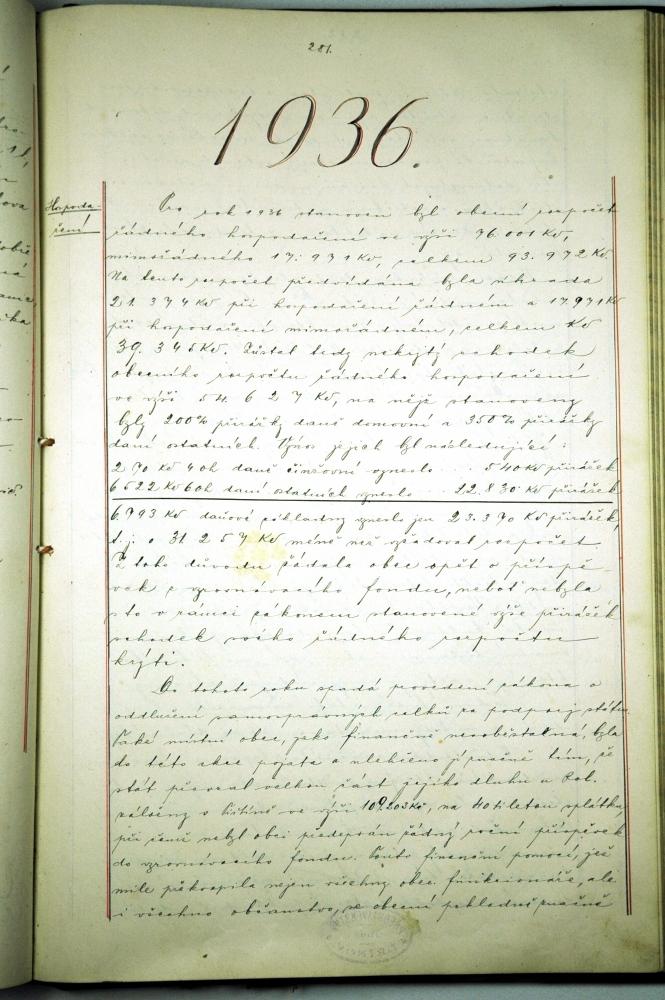 281.
1936.
Hospoda-
ření
Pro rok 1936 stanoven byl obecní rozpočet
řádného hospodaření ve výši 76.001 Kč,
mimořádného 17.971 Kč, celkem 93.972 Kč.
Na tento rozpočet předvídána byla úhrada
21.374 Kč při hospodaření řádném a 17.971 Kč
při hospodaření mimořádném, celkem Kč
39.345 Kč. Zůstal tedy nekrytý schodek
obecního rozpočtu řádného hospodaření
ve výši 54.627 Kč, na nějž stanoveny
byly 200% přirážky daně domovní a 350% přirážky
daní ostatních. Výnos jejich byl následující:
270 Kč 40h daně činžovní vyneslo ... 540 Kč přirážek
6522 Kč 60h daní ostatních vyneslo .. 22.830 Kč přirážek
6.793 Kč daňové základny vyneslo jen 23.370 Kč přirážek,
t.j. o 31257 Kč méně než vyžadoval rozpočet
Z toho důvodu žádala obec opět o příspě-
vek z vyrovnávacího fondu, neboť nebyla
s to v rámci zákonem stanovené výše přirážek
schodek svého řádného rozpočtu
krýti.
Do tohoto roku spadá provedení zákona o
oddlužení samosprávných celků za podpory státu.
Také místní obec, jako finančně nesoběstačná, byla
do této akce pojata a ulehčeno jí značně tím, že
stát převzal velkou část jejího dluhu u
záložny v ve výši 109.203 Kč, na 40tiletou splátku,
při čemž nebyl obci předepsán žádný roční příspěvek
do vyrovnávacího fondu. Touto finanční pomocí, jež
mile překvapila nejen všechny obec. funkcionáře, ale
i všechno občanstvo, se obecní pokladně značně